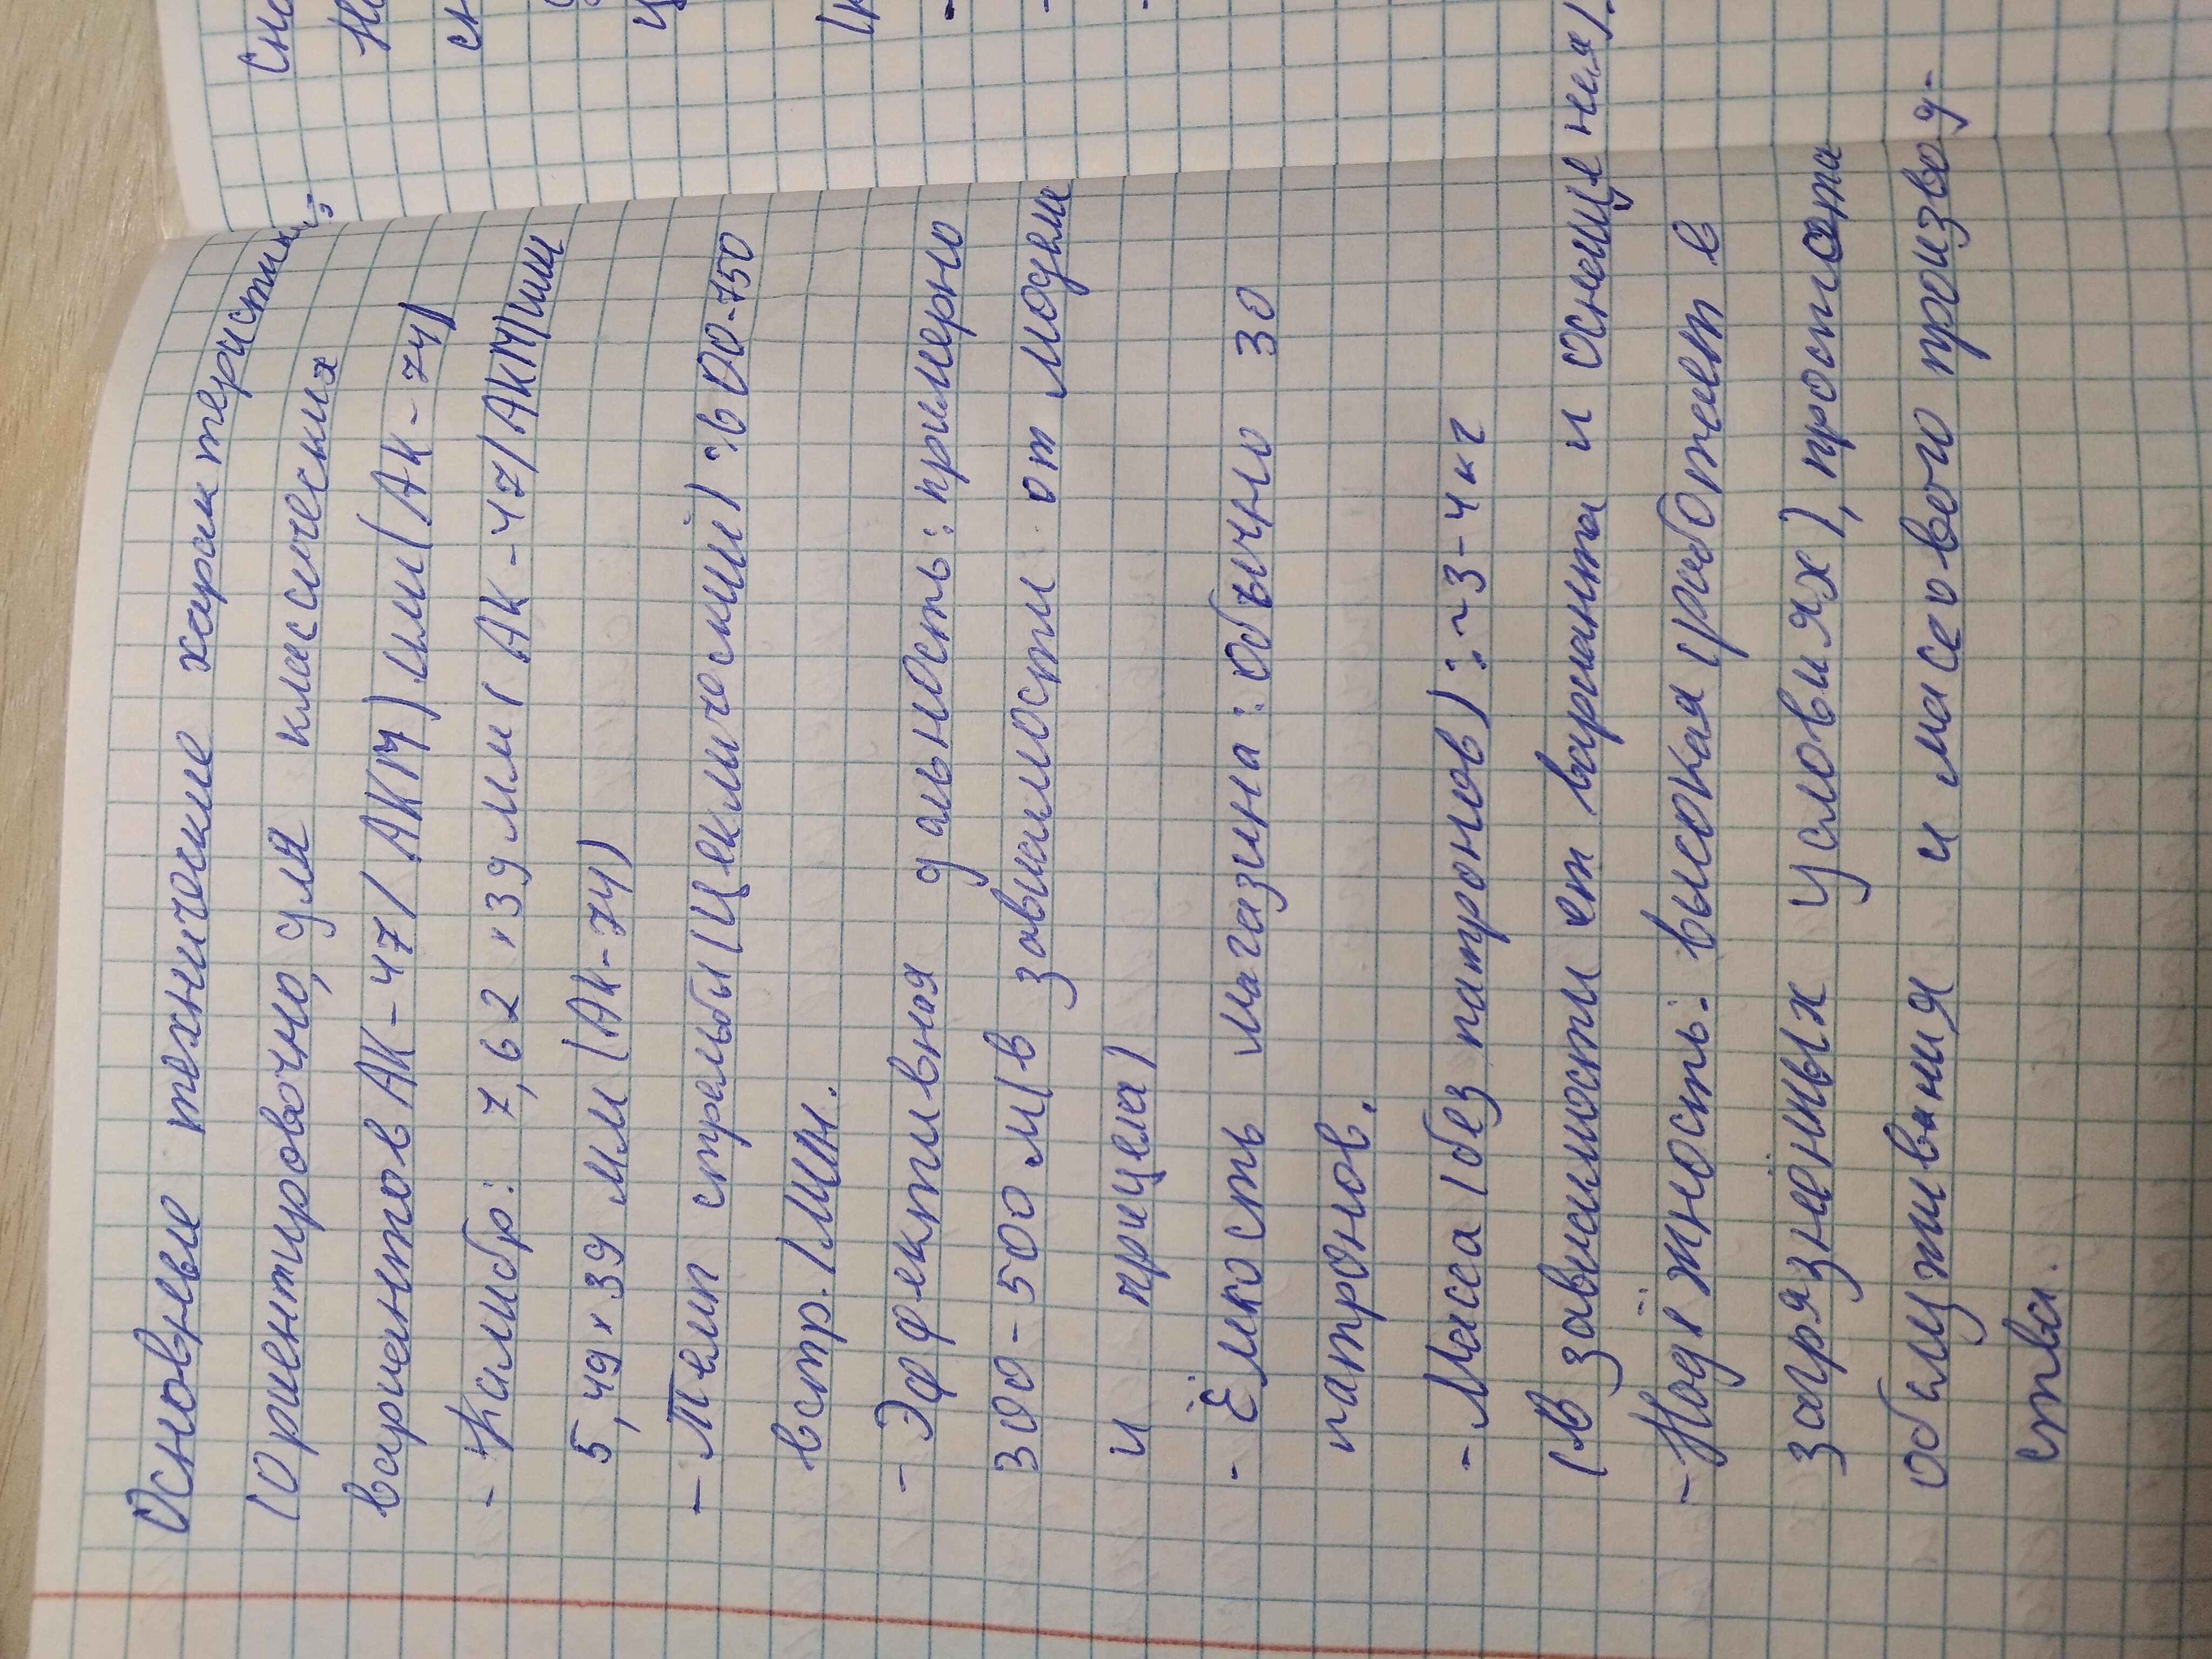 Основные технические характеристики:
(Ориентировочно, для класических
вариантов АК-47/ АКМ) или (АК-74)
- Калибр: 7,62 х39 мм ( АК-47/АКМ)или
5,49х39 мм (АК-74)
- Темп стрельбы(Цеклический) : 600-750
встр./мин.
- Эффективная дальность: примерно
300-500 м(в зависимости от модели
и прицела)
- Ёмкость магазина: Обычно 30
патронов.
- Масса (без патронов) : ~3-4кг
(В зависимости от варианта и оснащения).
- Надёжность: высокая (работает в
загрязнённых условиях), простота
обслуживания и масового производ-
ства.